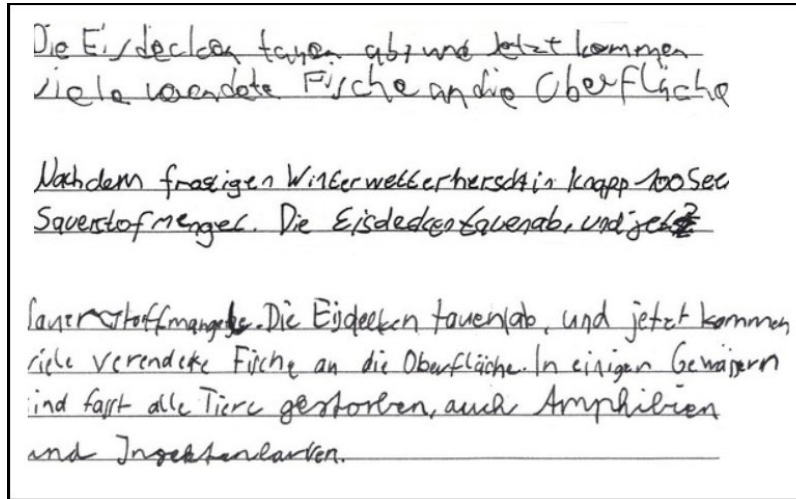 Die Eisdecken tauen ab, und jetzt kommen
viele verendete Fische an die Oberfläche
Nach dem frostigen Winterwetter herscht in knapp 100 See
Sauerstofmengel. Die Eisdecken tauen ab, und jetz
Sauerstoffmangel. Die Eisdecken tauen ab, und jetzt kommen
viele verendete Fische an die Oberfläche. In einigen Gewässern
sind fasst alle Tiere gestorben, auch Amphibien
und Insektenlarven.